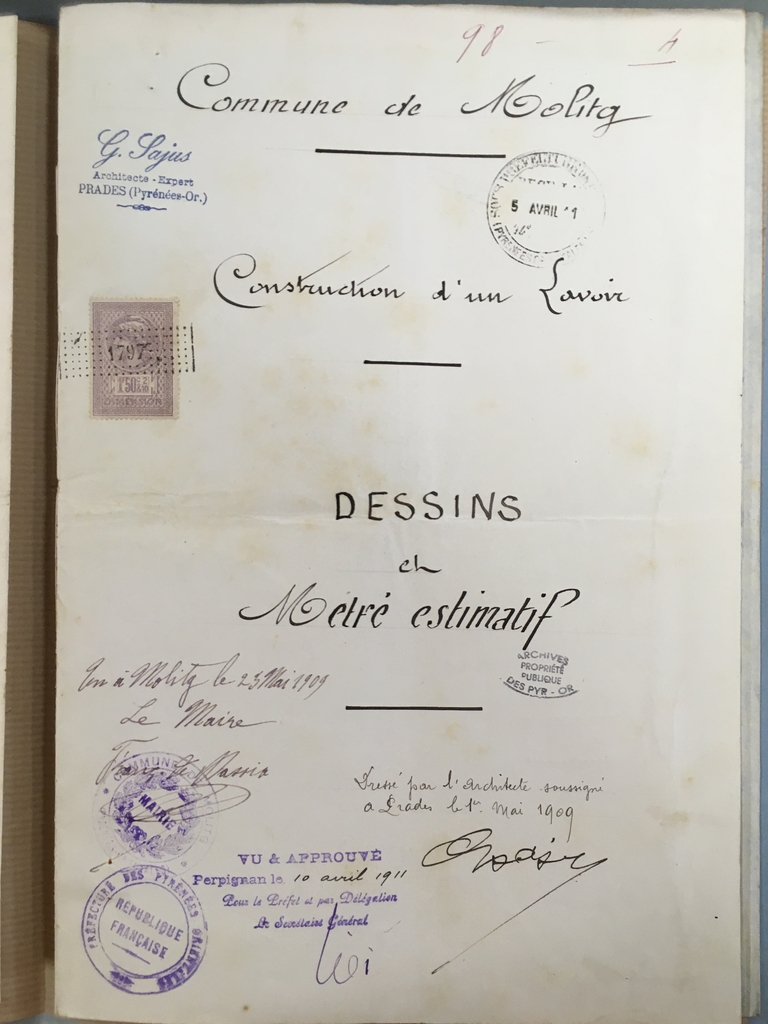 98 - 4
Commune de Molitg
G. Sajus
Architecte - Expert
PRADES (Pyrénées-Or.)
5 AVRIL 11
Construction d'un Lavoir
1797
1F50
DIMENSION
DESSINS
et
Métré estimatif
ARCHIVES
PROPRIÉTÉ
PUBLIQUE
DES PYR - OR
Vu à Molitg le 23 Mai 1909
Le Maire
COMMUNE
MAIRIE
Dressé par l'architecte soussigné
a Prades le 1er Mai 1909
VU & APPROUVÉ
Perpignan le 10 avril 1911
Pour le Préfet et par Délégation
Le Secrétaire Général
PRÉFECTURE DES PYRÉNÉES ORIENTALES
RÉPUBLIQUE
FRANÇAISE